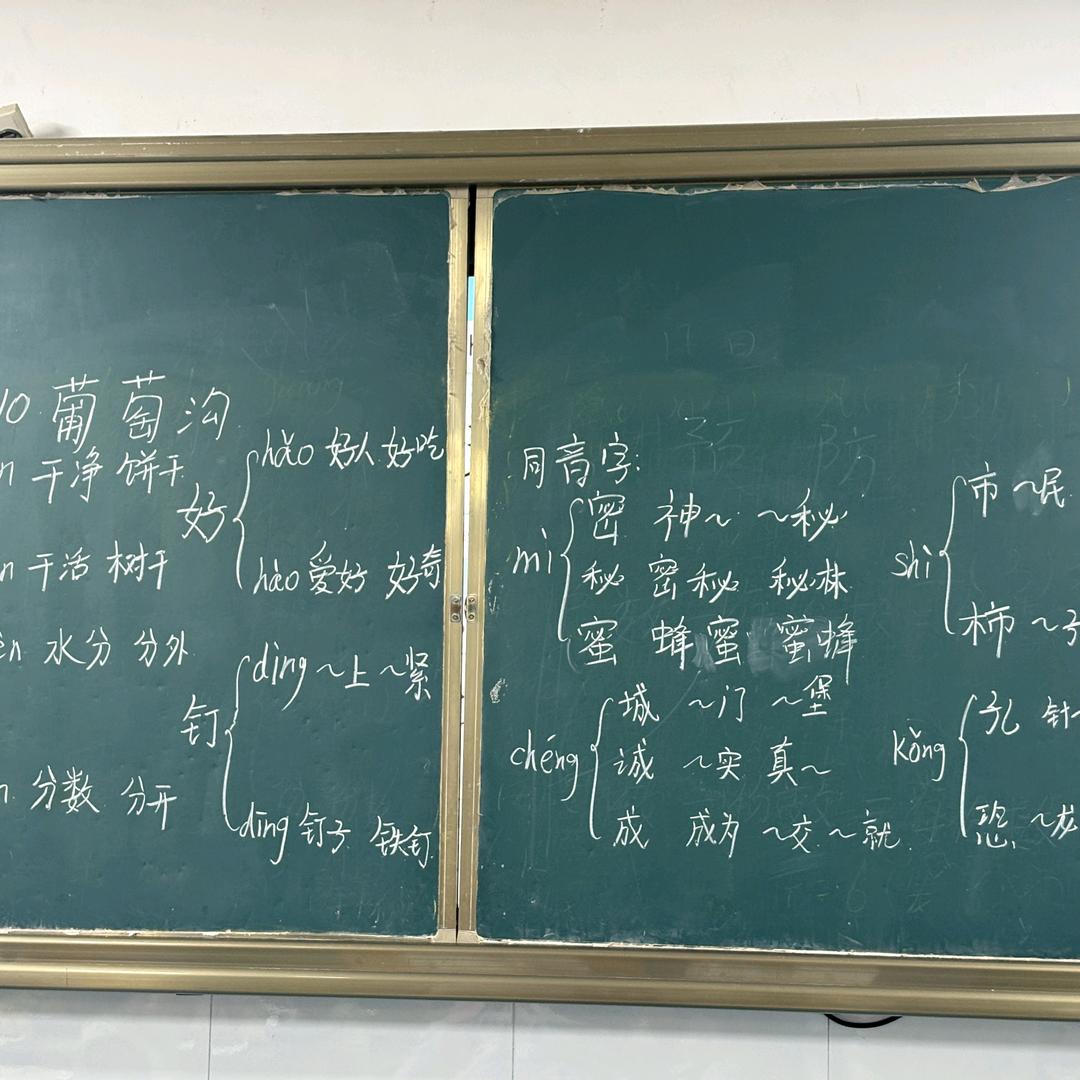 10 葡萄沟
n 干净 饼干
n 干活 树干
èn 水分 分外
n 分数 分开
好
hǎo 好人 好吃
hào 爱好 好奇
钉
dìng ~上 ~紧
dīng 钉子 铁钉
同音字:
mì
密 神~ ~秘
秘 密秘 秘林
蜜 蜂蜜 蜜蜂
chéng
城 ~门 ~堡
诚 ~实 真~
成 成为 ~交 ~就
shì
市 ~民
柿 ~子
kǒng
孔 针~
恐 ~龙
预防